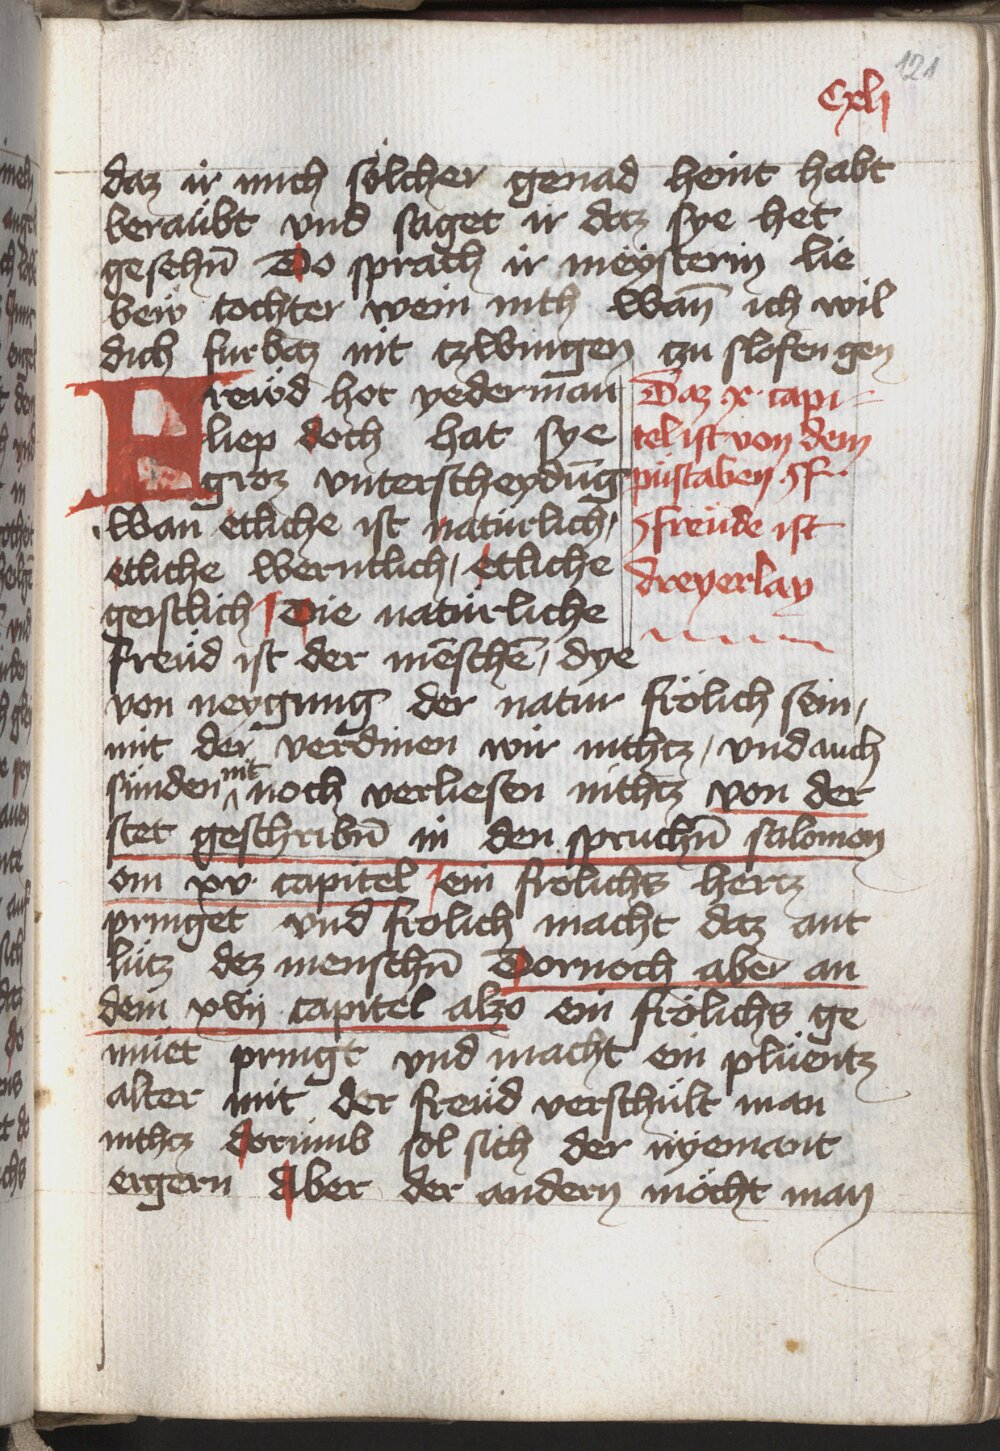 121
Cxlj
daz ir mich sölcher genad heint habt
beraübt vnd saget ir daz sye het
gesehn̄ Do sprach ir meÿsterin lie
bew tochter wein nith wan̄ ich wil
dich furbaz nit tzwingen tzu slofen gen
Frewd hot yederman
liep doch hat sye
groz vnterscheydūg
Wan etliche ist natürlich,
etliche werntlich, etliche
geistlich Die natürliche
freüd ist der mēschē, dye
von neygung der natur frölich sein,
mit der verdinen wir nithtz, vnd auch
sünden nit noch verliesen nithtz von der
stet geschribn̄ in den spruchn̄ salomon
om xv capitel ein frolichs hertz
pringet vnd frolich macht daz ant
lütz dez menschn̄ Dornoch aber an
dem xvij capitel alzo ein frölichs ge
müet pringt vnd macht ein plüentz
alter mit der freüd verschült man
nithtz dorümb sol sich der nyemant
ergern Aber der andern möcht man
Daz x capi
tel ist von dem
püstaben F
Freüde ist
dreyerlay